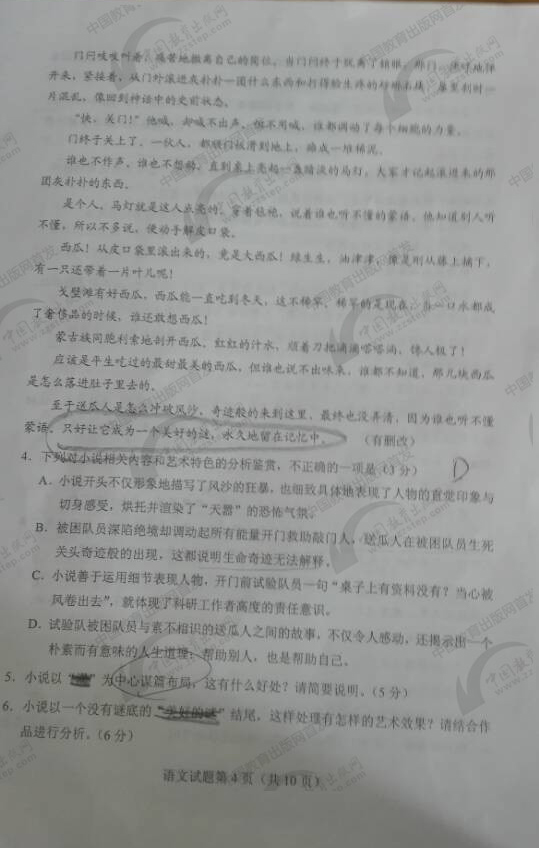 门闩吱吱叫着，痛苦地撤离自己的岗位。当门闩终于脱离了销眼，那门，
开来，紧接着，从门外滚进灰扑扑一团什么东西和打得脸生疼的砂砾石块，屋里刹时一
片混乱，像回到神话中的史前状态。
“快，关门！”他喊，却喊不出声，但不用喊，谁都调动了每个细胞的力量。
门终于关上了，一伙人，都顺门板滑到地上，瘫成一堆稀泥。
谁也不作声，谁也不想动，直到桌上亮起一盏暗淡的马灯，大家才记起滚进来的那
团灰扑扑的东西。
是个人，马灯就是这人点亮的，穿着毡袍，说着谁也听不懂的蒙语，他知道别人听
不懂，所以不多说，便动手解皮口袋。
西瓜！从皮口袋里滚出来的，竟是大西瓜！绿生生，油津津，像是刚从藤上摘下，
有一只还带着一片叶儿呢！
戈壁滩有好西瓜，西瓜能一直吃到冬天，这不稀罕，稀罕的是现在，当一口水都成
了奢侈品的时候，谁还敢想西瓜！
蒙古族同胞利索地剖开西瓜，红红的汁水，顺着刀把滴滴嗒嗒淌，馋人极了！
应该是平生吃过的最甜最美的西瓜，但谁也说不出味来，谁都不知道，那几块西瓜
是怎么落进肚子里去的。
至于送瓜人是怎么冲破风沙，奇迹般的来到这里，最终也没弄清，因为谁也听不懂
蒙语，只好让它成为一个美好的谜，永久地留在记忆中。 （有删改）
4．下列对小说相关内容和艺术特色的分析鉴赏，不正确的一项是（3分） D
A．小说开头不仅形象地描写了风沙的狂暴，也细致具体地表现了人物的直觉印象与
切身感受，烘托并渲染了“天嚣”的恐怖气氛。
B．被困队员深陷绝境却调动起所有能量开门救助敲门人，送瓜人在被困队员生死
关头奇迹般的出现，这都说明生命奇迹无法解释。
C．小说善于运用细节表现人物，开门前试验队员一句“桌子上有资料没有？当心被
风卷出去”，就体现了科研工作者高度的责任意识。
D．试验队被困队员与素不相识的送瓜人之间的故事，不仅令人感动，还揭示出一个
朴素而有意味的人生道理：帮助别人，也是帮助自己。
5．小说以“ ”为中心谋篇布局，这有什么好处？请简要说明。（5分）
6．小说以一个没有谜底的“美好的谜”结尾，这样处理有怎样的艺术效果？请结合作
品进行分析。（6分）
语文试题第4页（共10页）